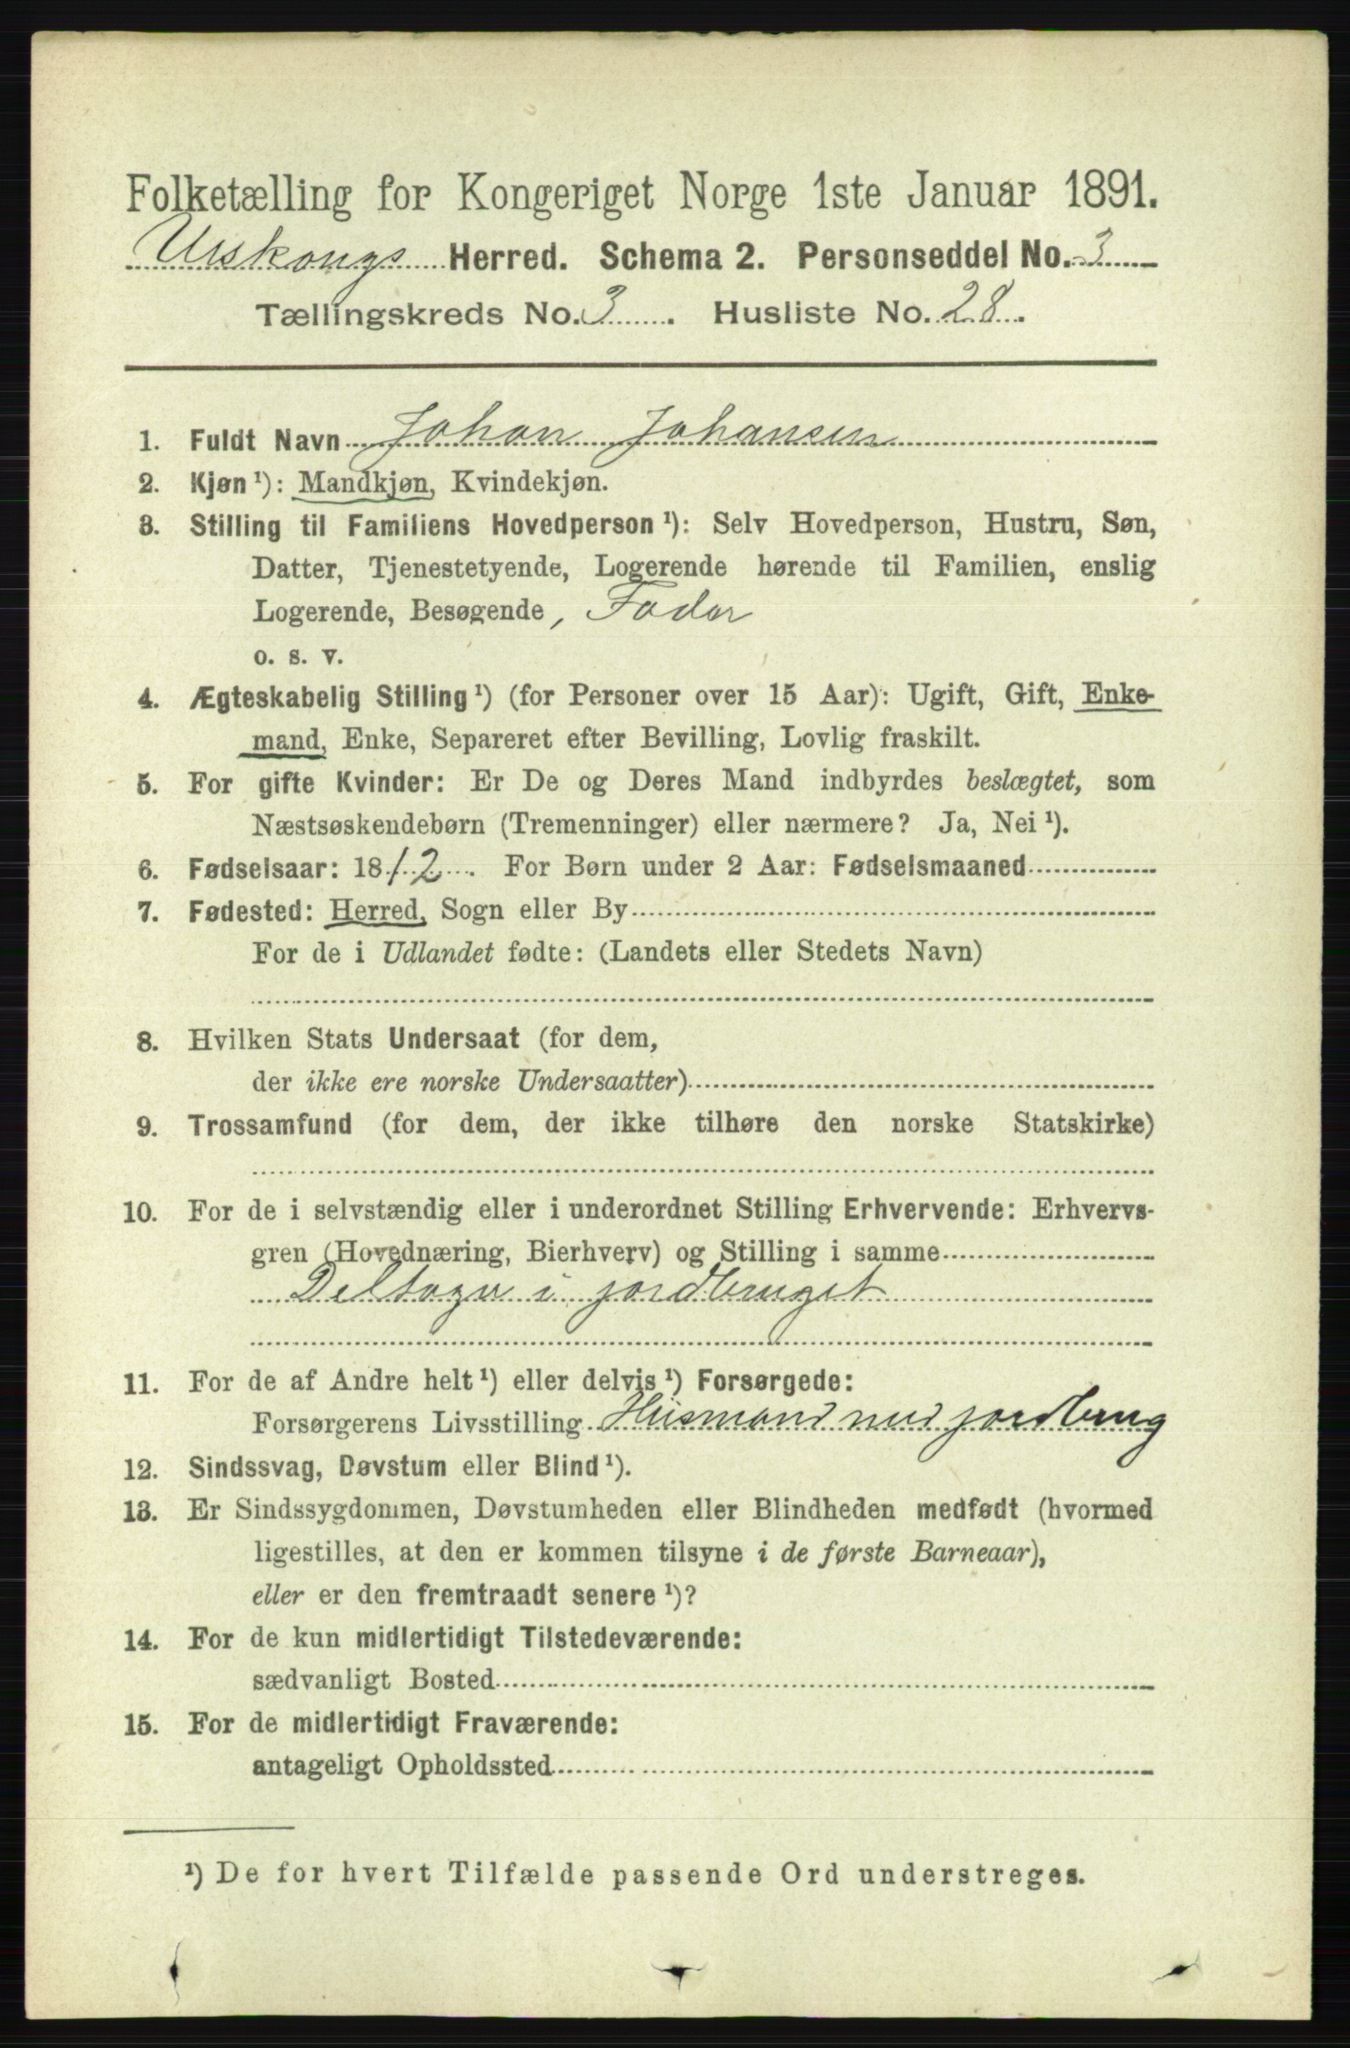 Folketælling for Kongeriget Norge 1ste Januar 1891.
Urskougs Herred. Schema 2. Personseddel No. 3
Tællingskreds No. 3. Husliste No. 28.
1. Fuldt Navn Johan Johansen
2. Kjøn¹): Mandkjøn, Kvindekjøn.
3. Stilling til Familiens Hovedperson¹): Selv Hovedperson, Hustru, Søn,
Datter, Tjenestetyende, Logerende hørende til Familien, enslig
Logerende, Besøgende, Fader
o. s. v.
4. Ægteskabelig Stilling¹) (for Personer over 15 Aar): Ugift, Gift, Enke-
mand, Enke, Separeret efter Bevilling, Lovlig fraskilt.
5. For gifte Kvinder: Er De og Deres Mand indbyrdes beslægtet, som
Næstsøskendebørn (Tremenninger) eller nærmere? Ja, Nei¹).
6. Fødselsaar: 1812. For Børn under 2 Aar: Fødselsmaaned
7. Fødested: Herred, Sogn eller By
For de i Udlandet fødte: (Landets eller Stedets Navn)
8. Hvilken Stats Undersaat (for dem,
der ikke ere norske Undersaatter)
9. Trossamfund (for dem, der ikke tilhøre den norske Statskirke)
10. For de i selvstændig eller i underordnet Stilling Erhvervende: Erhvervs-
gren (Hovednæring, Bierhverv) og Stilling i samme
Deltager i jordbruget
11. For de af Andre helt¹) eller delvis¹) Forsørgede:
Forsørgerens Livsstilling Husmand med jordbrug
12. Sindssvag, Døvstum eller Blind¹).
13. Er Sindssygdommen, Døvstumheden eller Blindheden medfødt (hvormed
ligestilles, at den er kommen tilsyne i de første Barneaar),
eller er den fremtraadt senere¹)?
14. For de kun midlertidigt Tilstedeværende:
sædvanligt Bosted
15. For de midlertidigt Fraværende:
antageligt Opholdssted
¹) De for hvert Tilfælde passende Ord understreges.